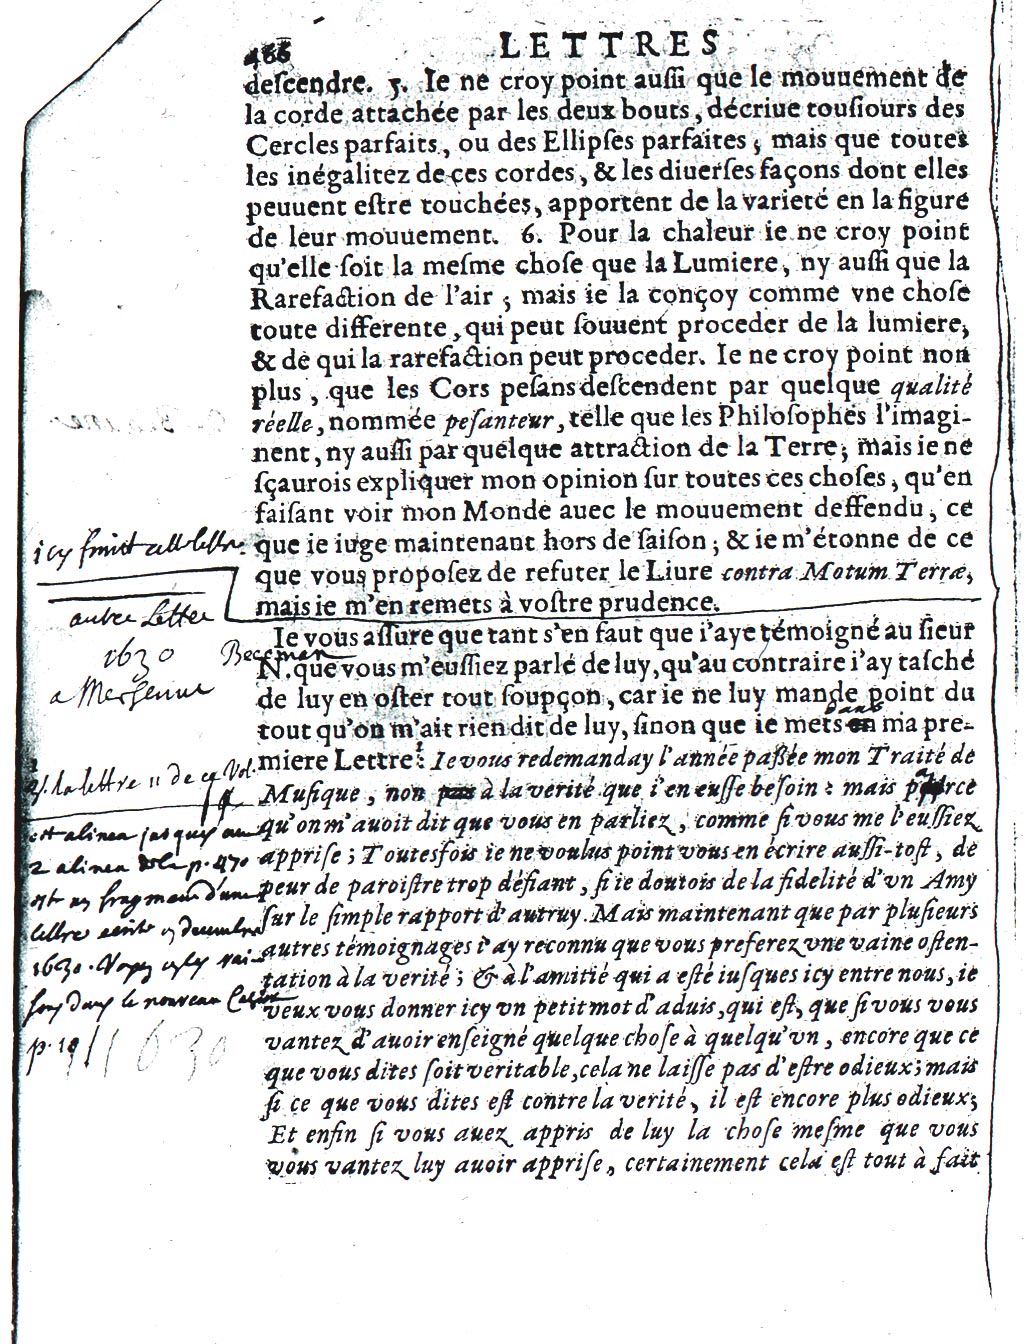 466 LETTRES
deſcendre. 5. Ie ne croy point auſſi que le mouuement de
la corde attachée par les deux bouts, décriue touſiours des
Cercles parfaits, ou des Ellipſes parfaites, mais que toutes
les inégalitez de ces cordes, & les diuerſes façons dont elles
peuuent eſtre touchées, apportent de la varieté en la figure
de leur mouuement. 6. Pour la chaleur ie ne croy point
qu'elle ſoit la meſme choſe que la Lumiere, ny auſſi que la
Rarefaction de l'air; mais ie la conçoy comme vne choſe
toute differente, qui peut ſouuent proceder de la lumiere,
& de qui la rarefaction peut proceder. Ie ne croy point non
plus, que les Cors peſans deſcendent par quelque qualité
réelle, nommée peſanteur, telle que les Philoſophes l'imagi-
nent, ny auſſi par quelque attraction de la Terre; mais ie ne
ſçaurois expliquer mon opinion ſur toutes ces choſes, qu'en
faiſant voir mon Monde auec le mouuement deffendu, ce
que ie iuge maintenant hors de ſaiſon; & ie m'étonne de ce
que vous propoſez de refuter le Liure contra Motum Terræ,
mais ie m'en remets à voſtre prudence.
Ie vous aſſure que tant s'en faut que i'aye témoigné au ſieur
Beecman
N. que vous m'euſſiez parlé de luy, qu'au contraire i'ay taſché
de luy en oſter tout ſoupçon, car ie ne luy mande point du
dans
tout qu'on m'ait rien dit de luy, ſinon que ie mets en ma pre-
miere Lettre: Ie vous redemanday l'année paſſée mon Traité de
Muſique, non pas à la verité que i'en euſſe beſoin: mais parce
qu'on m'auoit dit que vous en parliez, comme ſi vous me l'euſſiez
appriſe; Toutesfois ie ne voulus point vous en écrire auſſi-toſt, de
peur de paroiſtre trop défiant, ſi ie doutois de la fidelité d'vn Amy
ſur le ſimple rapport d'autruy. Mais maintenant que par pluſieurs
autres témoignages i'ay reconnu que vous preferez vne vaine oſten-
tation à la verité; & à l'amitié qui a eſté iuſques icy entre nous, ie
veux vous donner icy vn petit mot d'aduis, qui eſt, que ſi vous vous
vantez d'auoir enſeigné quelque choſe à quelqu'vn, encore que ce
que vous dites ſoit veritable, cela ne laiſſe pas d'eſtre odieux; mais
ſi ce que vous dites eſt contre la verité, il eſt encore plus odieux;
Et enfin ſi vous auez appris de luy la choſe meſme que vous
vous vantez luy auoir appriſe, certainement cela eſt tout à fait
icy finit cette lettre
autre Lettre
1630
a Mersenne
la lettre 11 de ce Vol.
cet alinea jusqu'au
2 alinea de la p. 470
est un fragment d'une
lettre ecrite en decembre
1630. Voyez
dans le nouveau Cahier
p. 19
1630